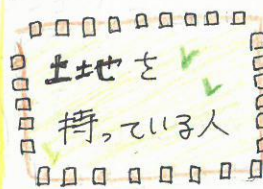 土地を
持っている人